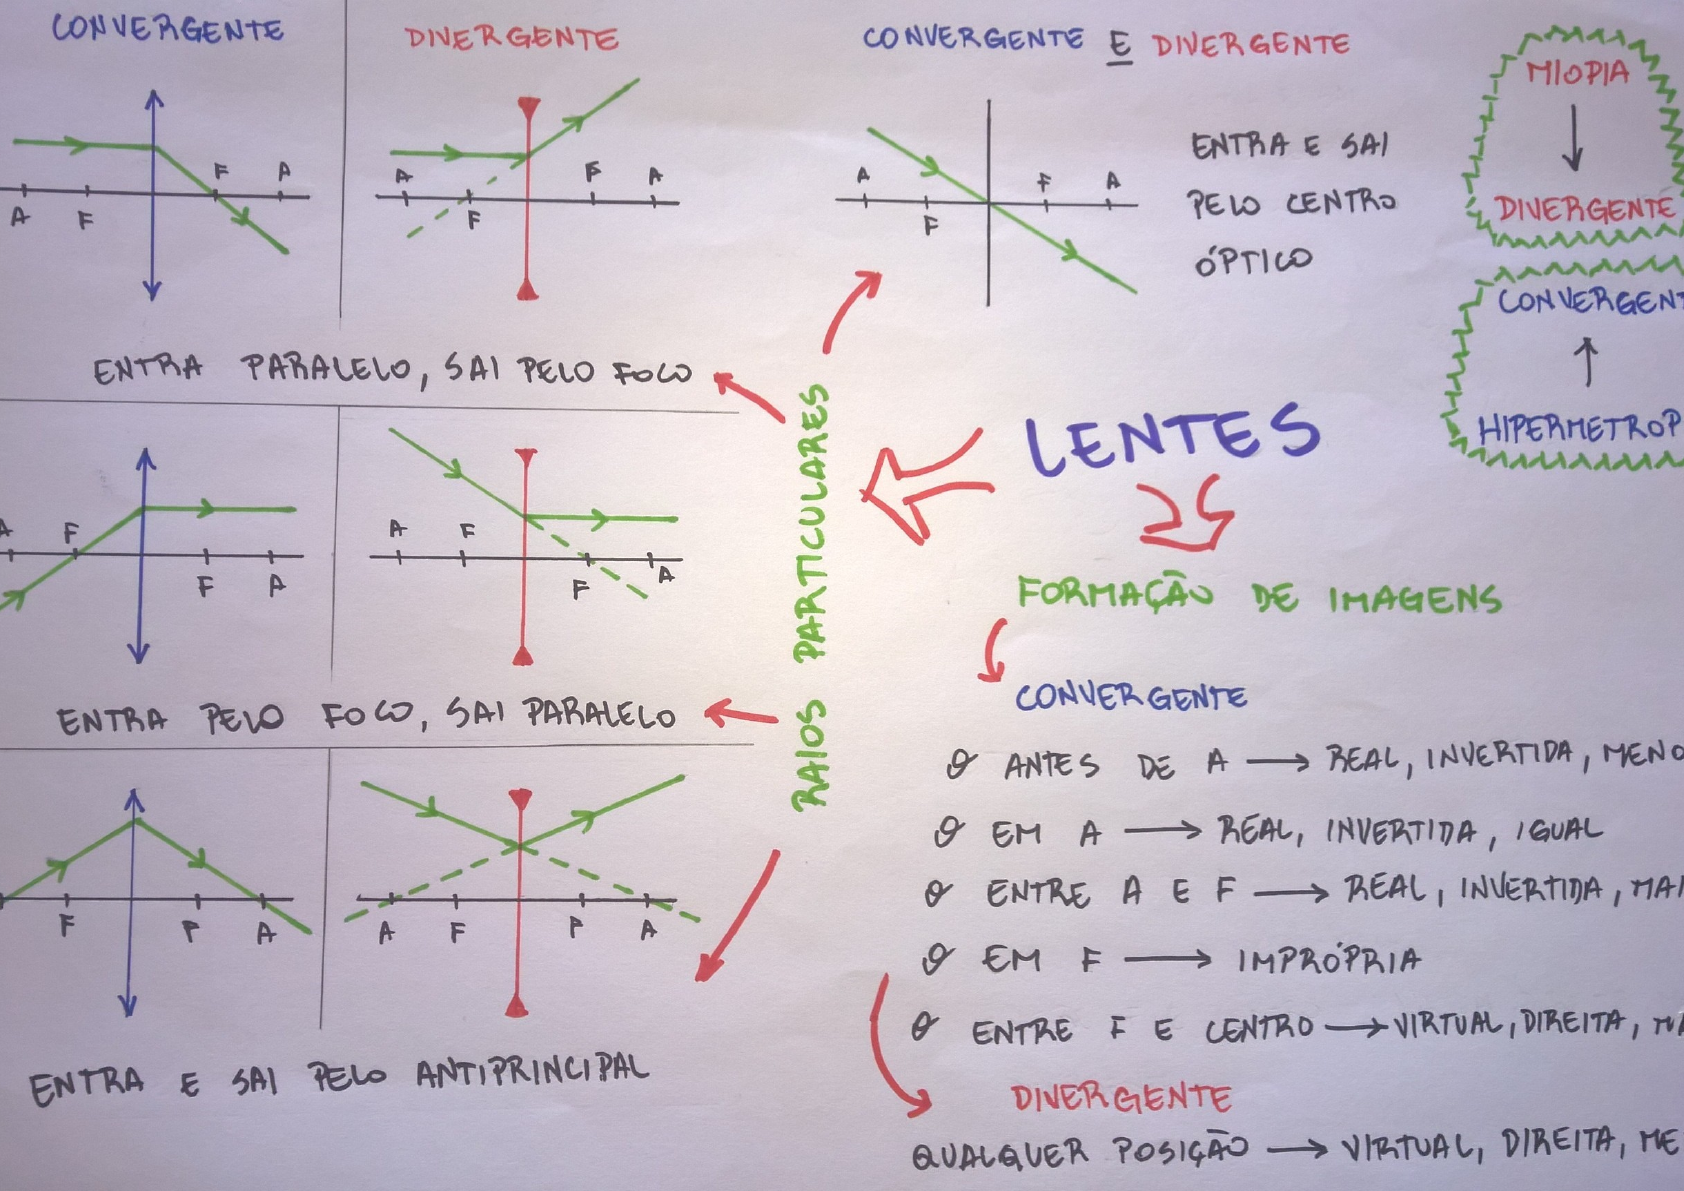 CONVERGENTE
DIVERGENTE
F A
A F
A F A
F
ENTRA PARALELO, SAI PELO FOCO
A F
F A
A F
F A
ENTRA PELO FOCO, SAI PARALELO
F F A
A F F A
ENTRA E SAI PELO ANTIPRINCIPAL
RAIOS PARTICULARES
CONVERGENTE E DIVERGENTE
A F A
F
ENTRA E SAI
PELO CENTRO
ÓPTICO
MIOPIA
DIVERGENTE
CONVERGENT
HIPERMETROP
LENTES
FORMAÇÃO DE IMAGENS
CONVERGENTE
O ANTES DE A → REAL, INVERTIDA, MENO
O EM A → REAL, INVERTIDA, IGUAL
O ENTRE A E F → REAL, INVERTIDA, MAI
O EM F → IMPRÓPRIA
O ENTRE F E CENTRO → VIRTUAL, DIREITA,
DIVERGENTE
QUALQUER POSIÇÃO → VIRTUAL, DIREITA, ME